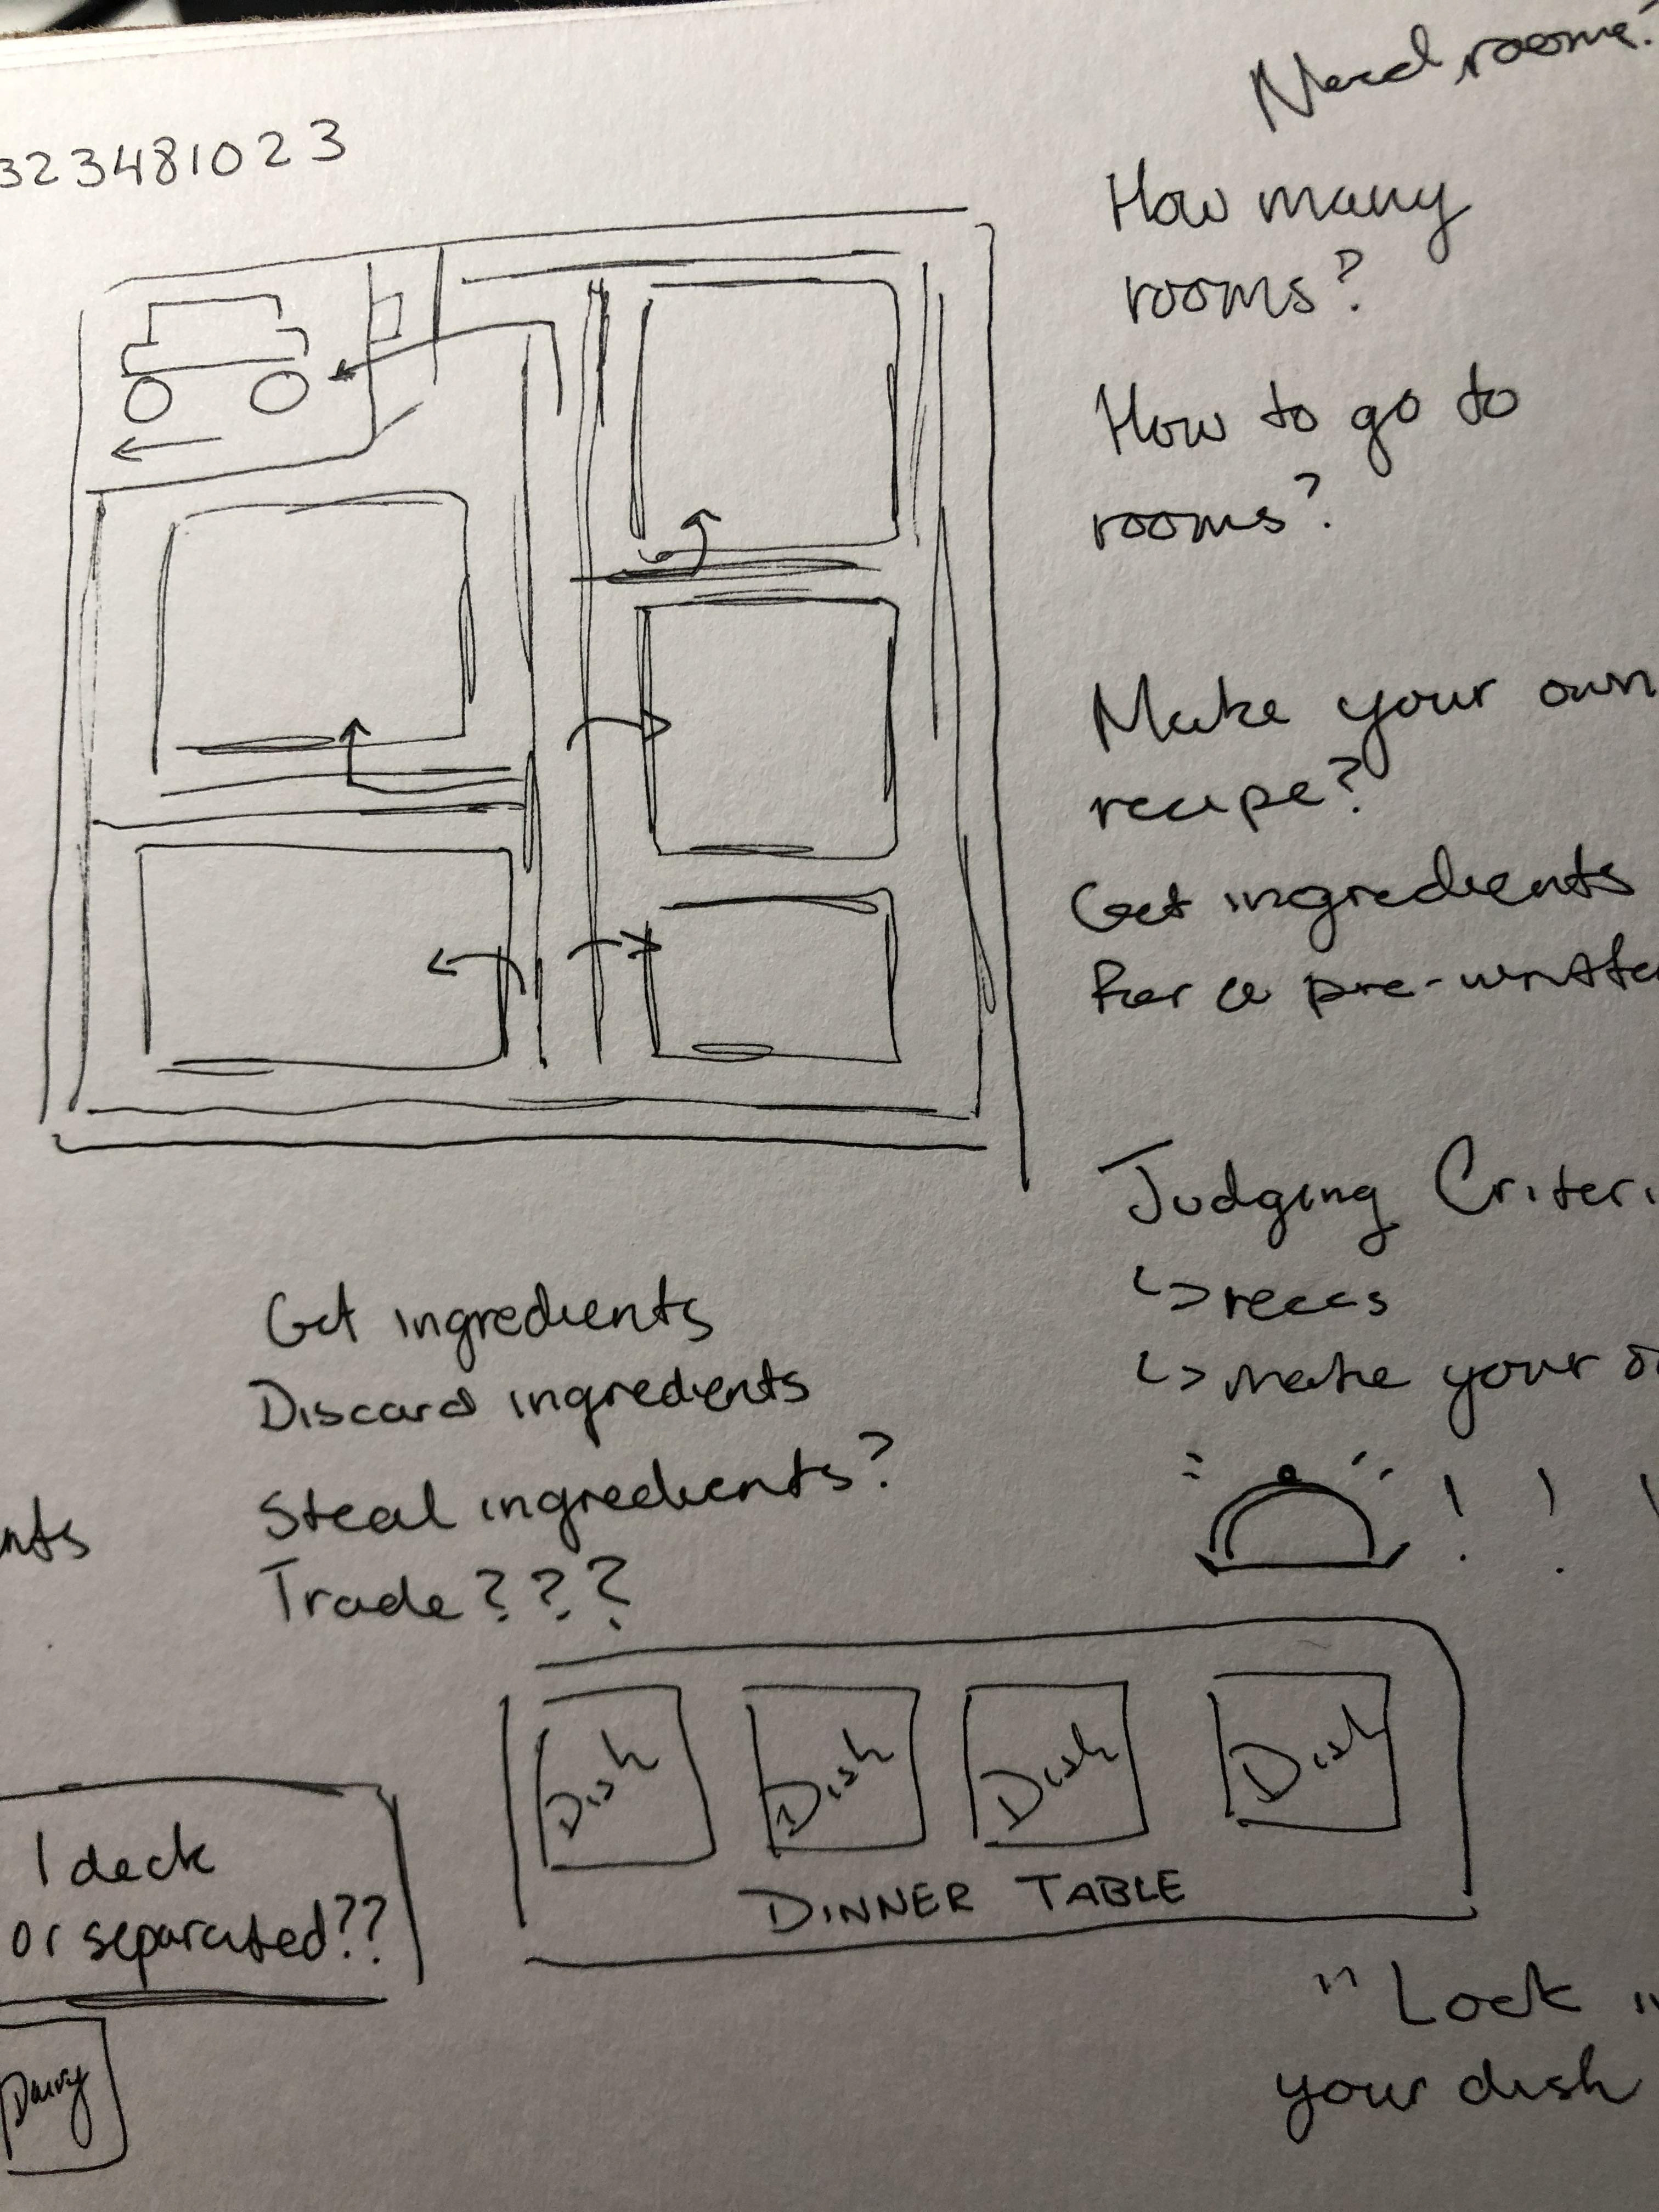 323481023
Need rooms?
How many
rooms?
How to go to
rooms?
Make your own
recipe?
Get ingredients
for a pre-writte
Judging Criteri
↳ reccs
↳ make your o
! ! !
Get ingredients
Discard ingredients
Steal ingredients?
Trade???
nts
Dish Dish Dish Dish
DINNER TABLE
1 deck
or separated??
Dairy
"Lock i
your dish